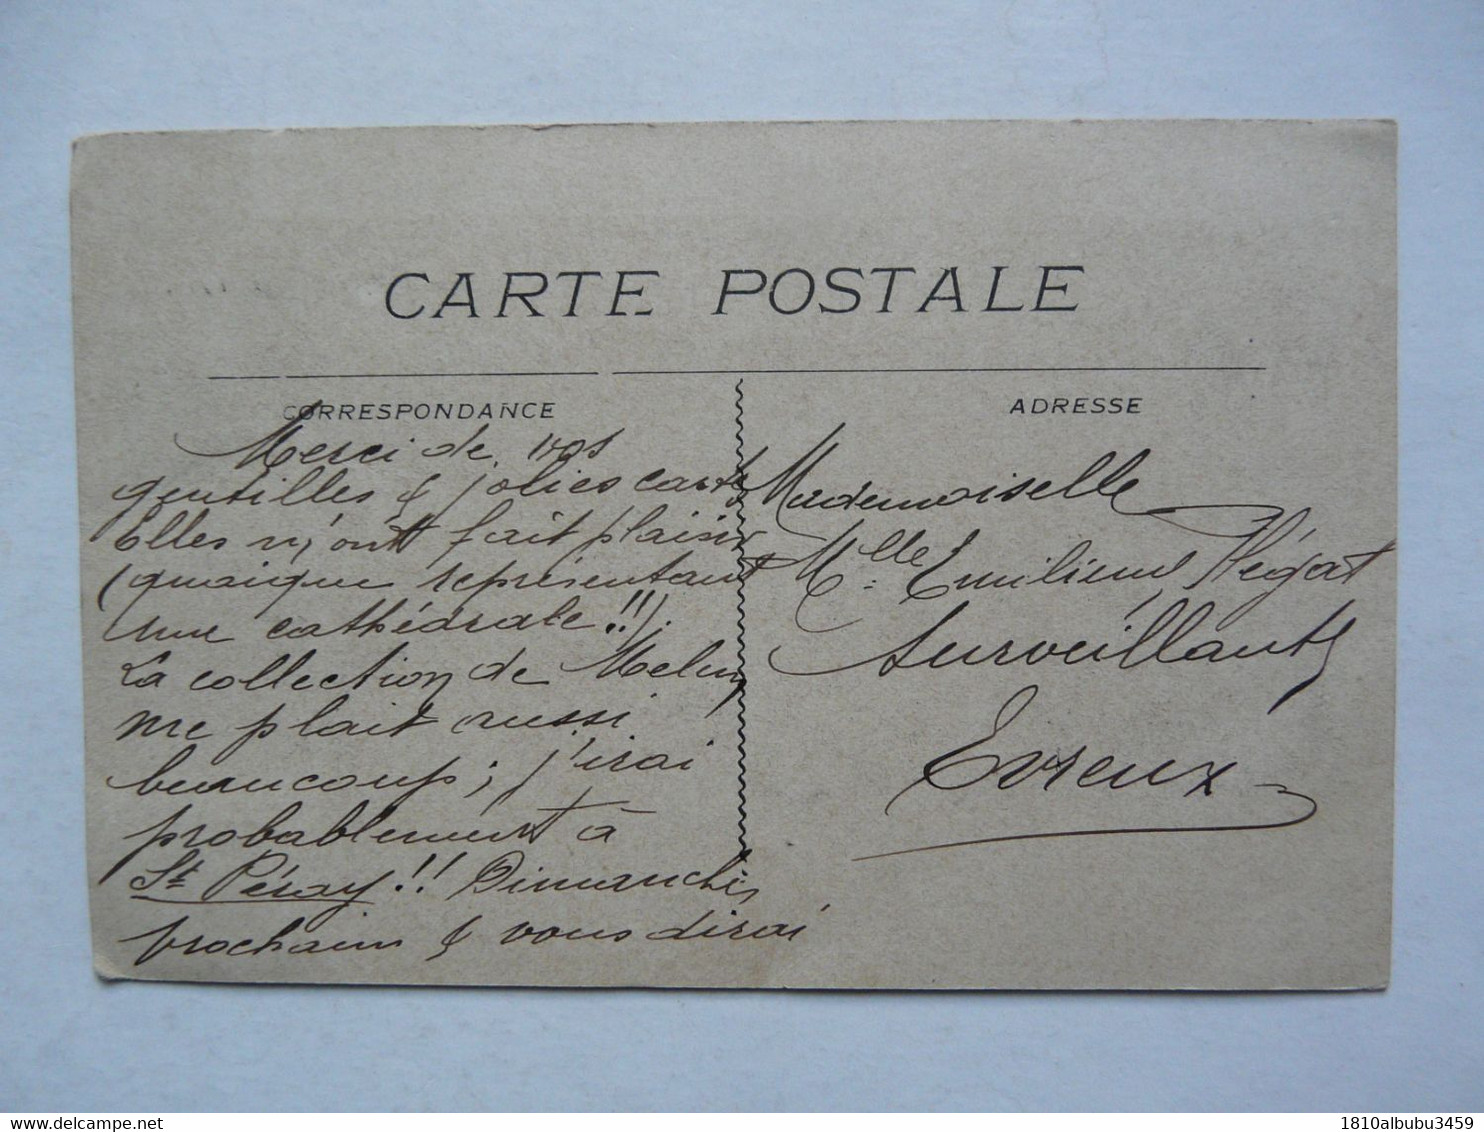 CARTE POSTALE
CORRESPONDANCE
Merci de vos
gentilles & jolies cartes
Elles m'ont fait plaisir
(quoique représentant
une cathédrale!!).
La collection de Melun
me plait aussi
beaucoup; j'irai
probablement à
St Péray!! Dimanche
prochain & vous dirai
ADRESSE
Mademoiselle
Melle Emilienne
Surveillante
Evreux
delcampe.net
1810albubu3459